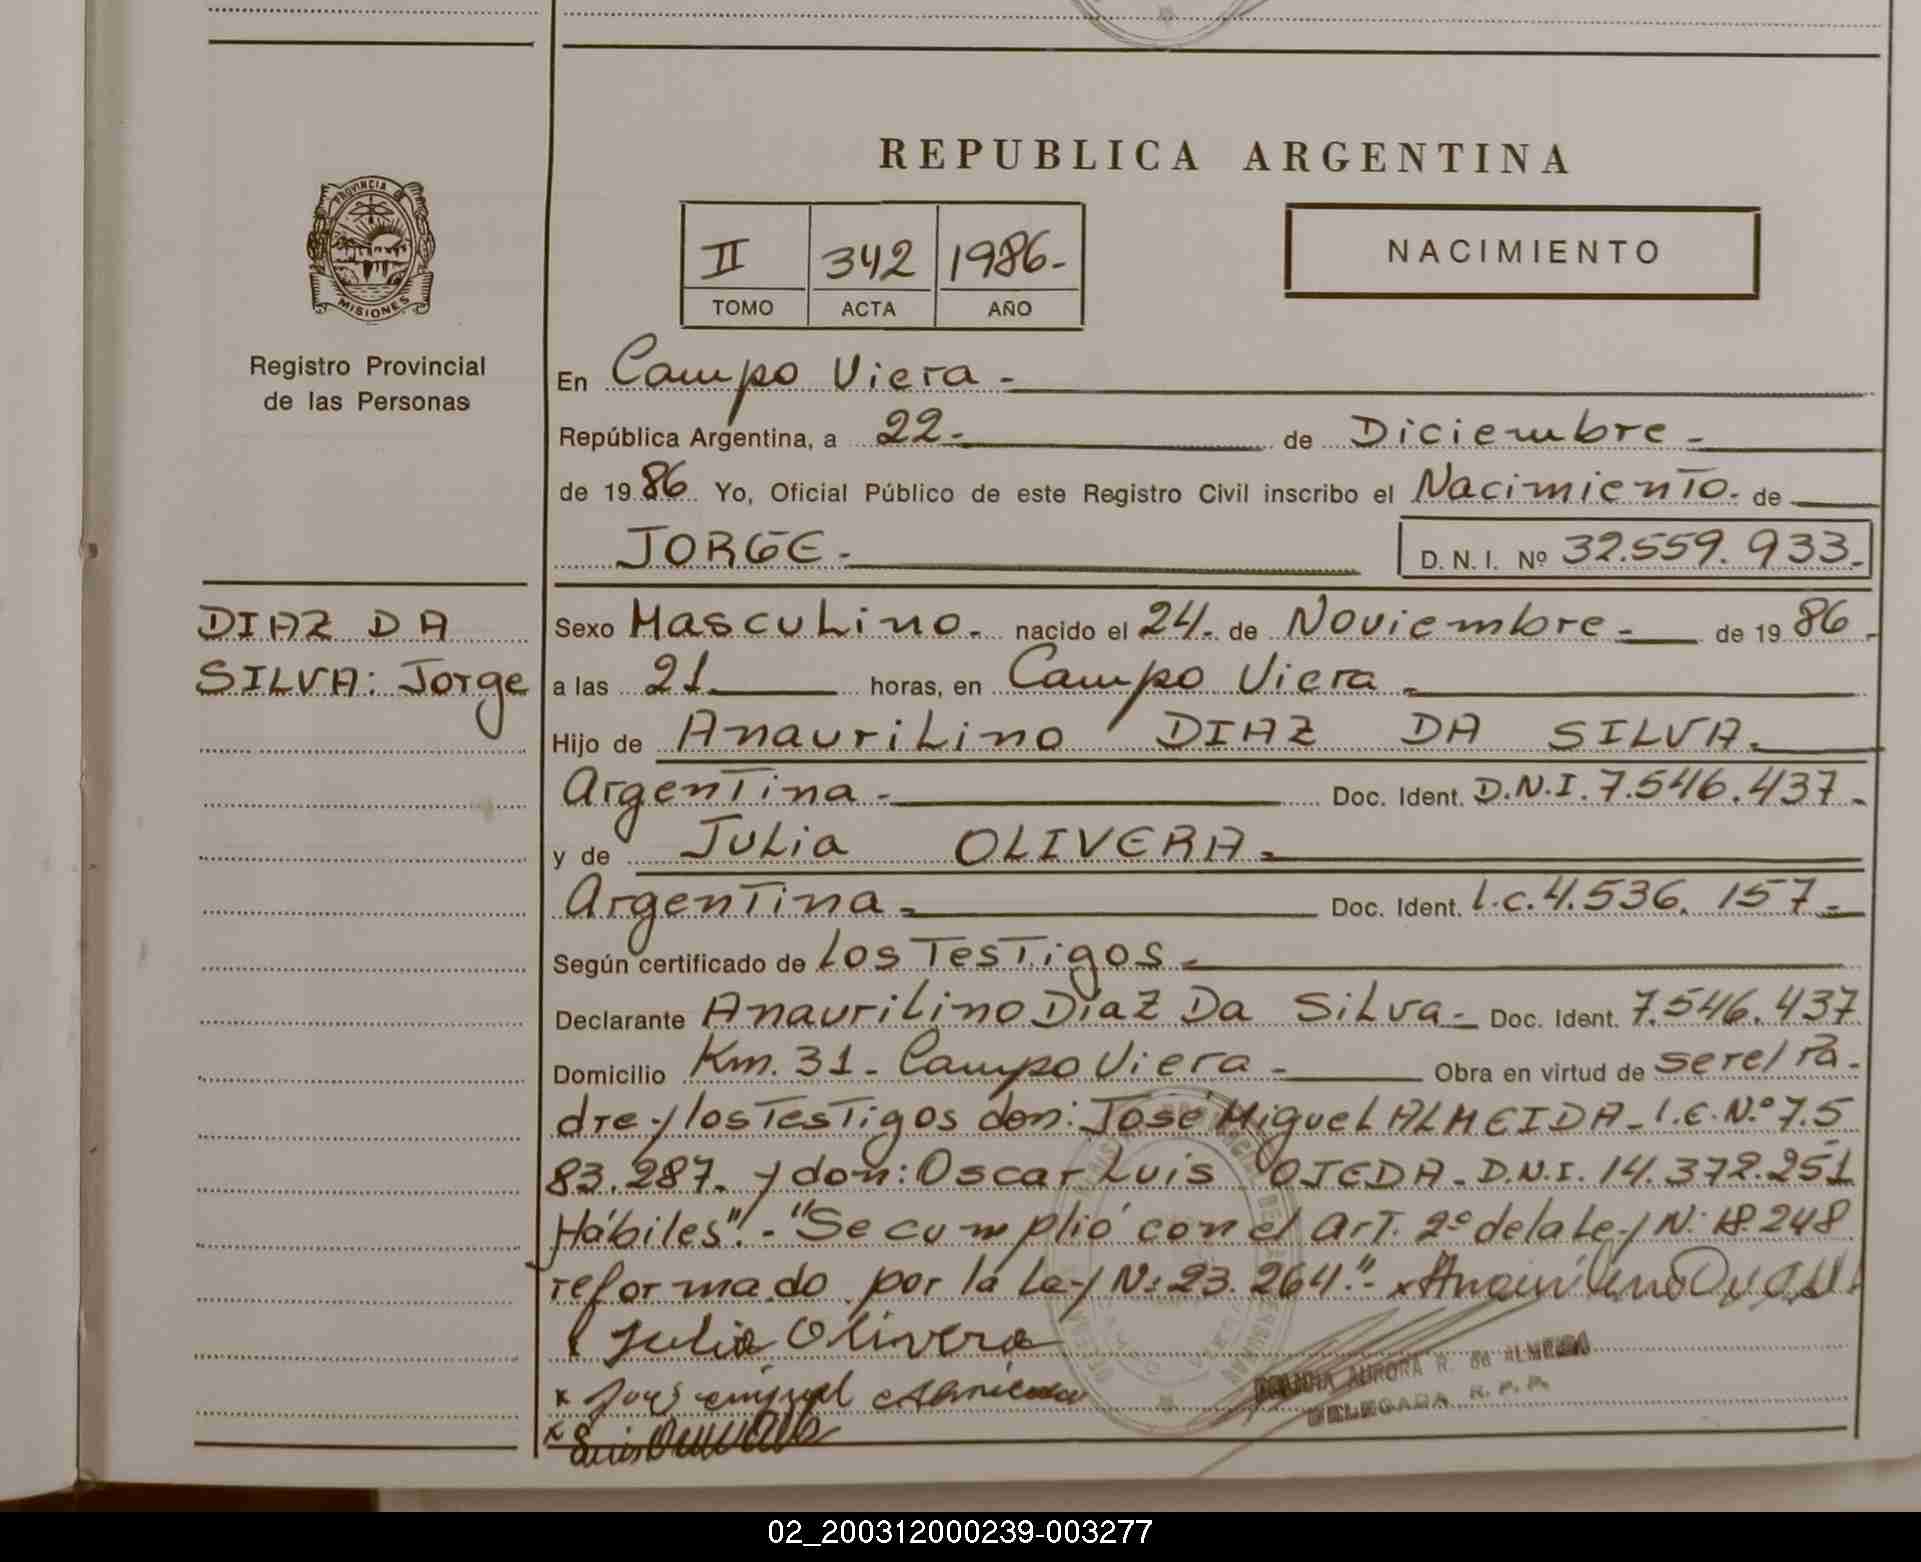 REPUBLICA ARGENTINA
PROVINCIA DE
MISIONES
Registro Provincial
de las Personas
II 342 1986-
TOMO ACTA AÑO
NACIMIENTO
En Campo Viera -
República Argentina, a 22- de Diciembre -
de 1986 Yo, Oficial Público de este Registro Civil inscribo el Nacimiento. de
JORGE. D. N. I. Nº 32.559.933.-
DIAZ DA
SILVA: Jorge
Sexo Masculino. nacido el 24. de Noviembre - de 1986.-
a las 21 horas, en Campo Viera -
Hijo de Anaurilino DIAZ DA SILVA.
Argentina - Doc. Ident. D.N.I. 7.546.437.-
y de Julia OLIVERA.-
Argentina - Doc. Ident. l.c. 4.536.157.-
Según certificado de los Testigos -
Declarante Anaurilino Diaz Da Silva.- Doc. Ident. 7.546.437
Domicilio Km. 31 - Campo Viera - Obra en virtud de ser el Pa-
dre y los Testigos don: José Miguel ALMEIDA - l.E. N.º 7.5
83.287. y don: Oscar Luis OJEDA - D.N.I. 14.372.251
Hábiles".- "Se cumplió con el art. 2º de la Ley N: 18.248
reformado por la Ley N: 23.264."-
x Julia Olivera
AURORA R. de ALMEIDA
DELEGADA R. P. P.
02_200312000239-003277